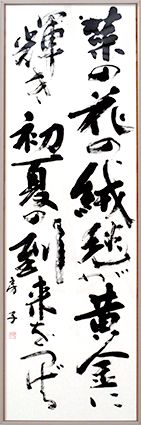 菜の花の絨毯が黄金に
輝き初夏の到来をつげる